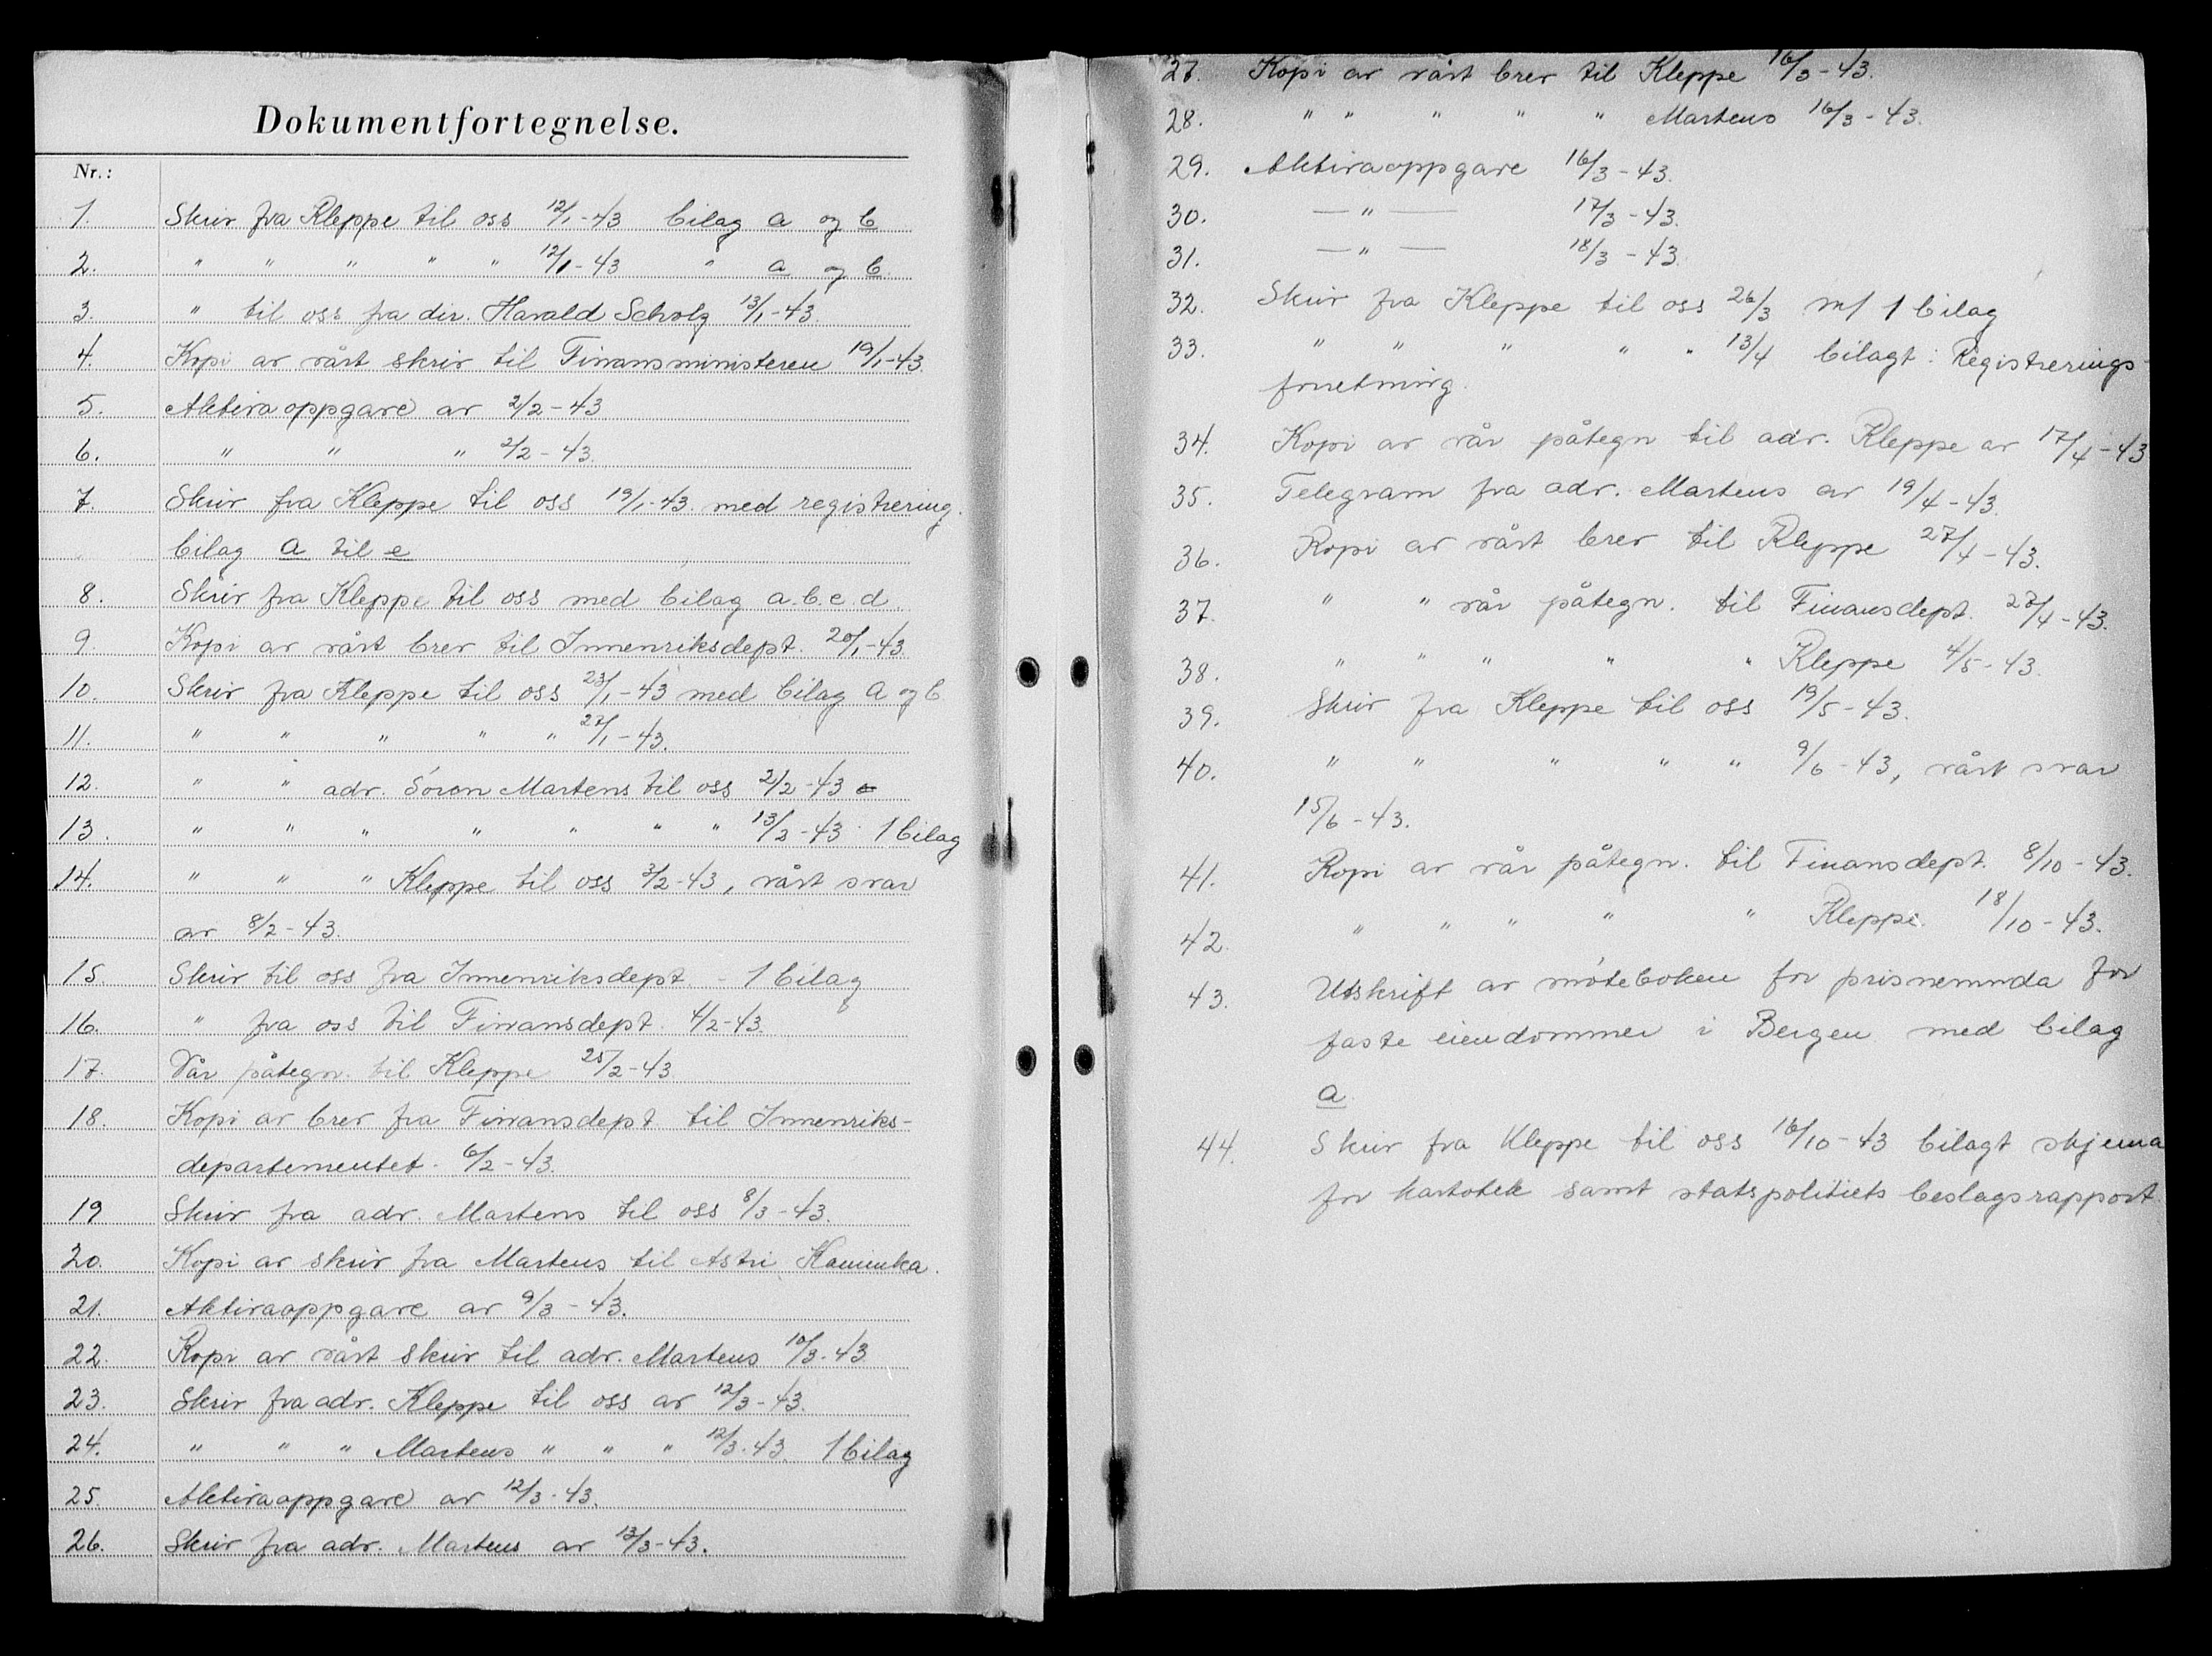 Dokumentfortegnelse.
Nr.:
1. Skriv fra Kleppe til oss 12/1-43 bilag a og b
2. " " " " " 12/1-43 " a og b
3. " til oss fra dir. Harald Scholz 13/1-43.
4. Kopi av vårt skriv til Finansministeren 19/1-43.
5. Aktivaoppgave av 2/2-43
6. " " " 2/2-43.
7. Skriv fra Kleppe til oss 19/1-43. med registrering.
bilag a til e
8. Skriv fra Kleppe til oss med bilag a.b.c.d.
9. Kopi av vårt brev til Innenriksdept. 20/1-43.
10. Skriv fra Kleppe til oss 23/1-43 med bilag a og b
11. " " " " " 27/1-43.
12. " " adv. Sören Martens til oss 2/2-43
13. " " " " " " " 13/2-43 1 bilag
14. " " " Kleppe til oss 3/2-43, vårt svar
av 8/2-43.
15. Skriv til oss fra Innenriksdept. - 1 bilag
16. " fra oss til Finansdept. 4/2-43.
17. Vår påtegn. til Kleppe 25/2-43
18. Kopi av brev fra Finansdept. til Innenriks-
departementet. 6/2-43.
19 Skriv fra adv. Martens til oss 8/3-43.
20. Kopi av skriv fra Martens til Astri Kaminka.
21. Aktivaoppgave av 9/3-43.
22. Kopi av vårt skriv til adv. Martens 10/3-43
23. Skriv fra adv. Kleppe til oss av 12/3-43.
24. " " " Martens " " " 12/3-43. 1 bilag
25. Aktivaoppgave av 12/3-43.
26. Skriv fra adv. Martens av 13/3-43.
27. Kopi av vårt brev til Kleppe 16/3-43.
28. " " " " " Martens 16/3-43.
29. Aktivaoppgave 16/3-43.
30. — " — 17/3-43.
31. — " — 18/3-43.
32. Skriv fra Kleppe til oss 26/3 m/ 1 bilag
33. " " " " " 13/4 bilagt: Registrerings-
forretning.
34. Kopi av vår påtegn til adv. Kleppe av 17/4-43
35. Telegram fra adv. Martens av 19/4-43.
36. Kopi av vårt brev til Kleppe 27/4-43.
37. " " vår påtegn. til Finansdept. 27/4-43.
38. " " " " " Kleppe 4/5-43.
39. Skriv fra Kleppe til oss 19/5-43.
40. " " " " " 9/6-43, vårt svar
15/6-43.
41. Kopi av vår påtegn. til Finansdept. 8/10-43.
42. " " " " " Kleppe. 18/10-43.
43. Utskrift av möteboken for prisnemnda for
faste eiendommer i Bergen med bilag
a
44. Skriv fra Kleppe til oss 16/10-43 bilagt skjema
for kartotek samt statspolitiets beslagsrapport